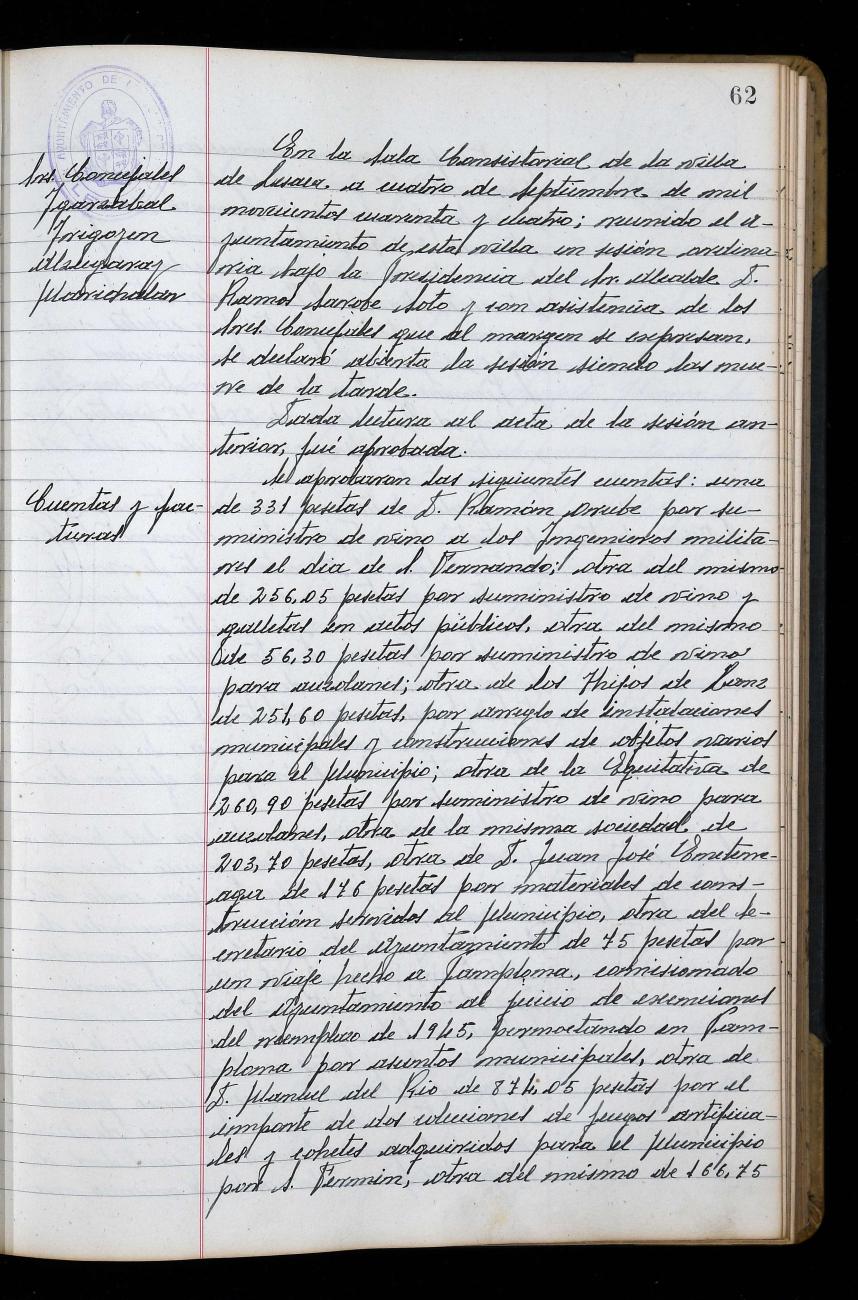 62
AYUNTAMIENTO DE
Srs. Concejales
Igarzabal
Irigoyen
Alzugaray
Marichalar
En la Sala Consistorial de la villa
de Lesaca a cuatro de Septiembre de mil
novecientos cuarenta y cuatro; reunido el a-
yuntamiento de esta villa en sesión ordina-
ria bajo la Presidencia del Sr. Alcalde D.
Ramos Sarobe Soto y con asistencia de los
Sres. Concejales que al margen se expresan,
se declaró abierta la sesión siendo las nue-
ve de la tarde.
Dada lectura al acta de la sesión an-
terior, fué aprobada.
Cuentas y fac-
turas
Se aprobaron las siguientes cuentas: una
de 331 pesetas de D. Ramón por su-
ministro de vino a los Ingenieros milita-
res el dia de S. Fernando; otra del mismo
de 256,05 pesetas por suministro de vino y
galletas en actos públicos, otra del mismo
de 56,30 pesetas por suministro de vino
para auzolanes; otra de los Hijos de Lanz
de 251,60 pesetas, por arreglo de instalaciones
municipales y construcciones de objetos varios
para el Municipio; otra de la Equitativa de
260,90 pesetas por suministro de vino para
auzolanes, otra de la misma sociedad de
203,70 pesetas, otra de D. Juan José
de 176 pesetas por materiales de cons-
trucción servidos al Municipio, otra del Se-
cretario del Ayuntamiento de 75 pesetas por
un viaje hecho a Pamplona, comisionado
del Ayuntamiento al juicio de exenciones
del reemplazo de 1945, pernoctando en Pam-
plona por asuntos municipales, otra de
D. Manuel del Rio de 874,05 pesetas por el
importe de dos colecciones de fuegos artificia-
les y cohetes adquiridos para el Municipio
por S. Fermin, otra del mismo de 166,75